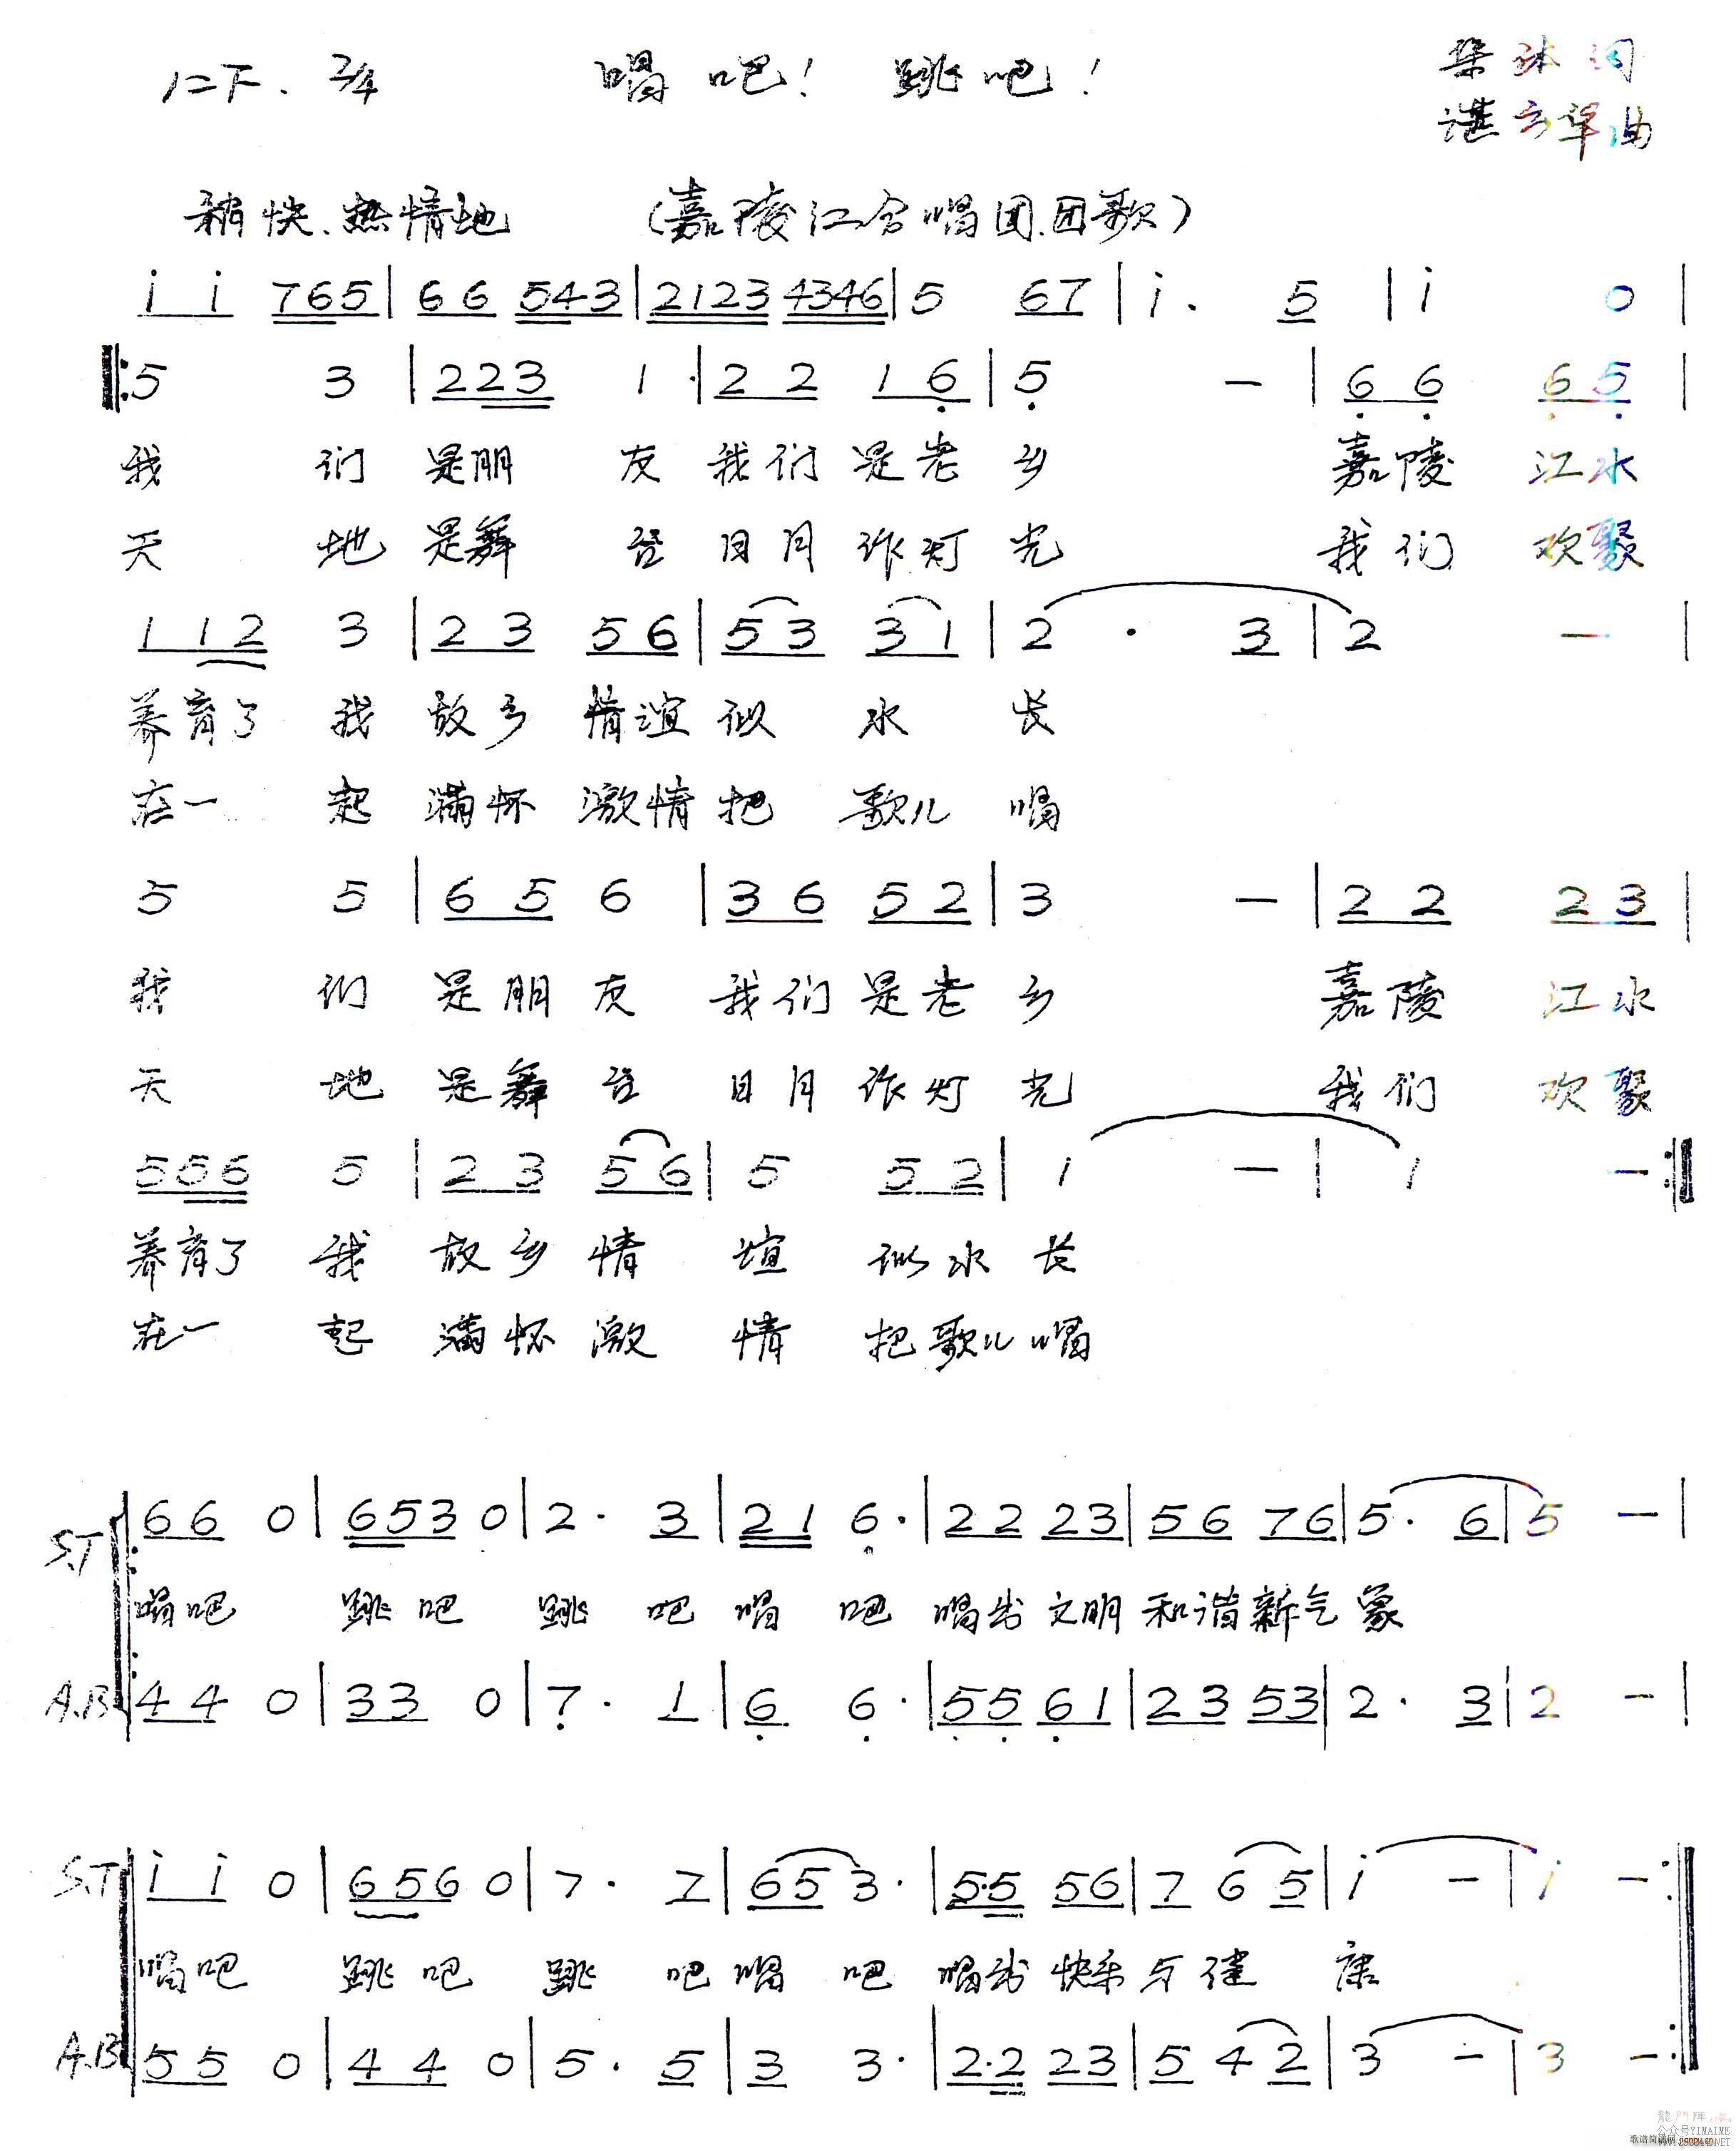 1=F. 2/4 唱吧! 跳吧! 词
谌 曲
稍快.热情地 (嘉陵江合唱团.团歌)
i i 765 | 66 543 | 2123 4346 | 5 67 | i . 5 | i 0 |
‖: 5 3 | 223 1 . | 22 16 | 5 — | 66 65 |
我 们 是朋 友 我们 是老 乡 嘉陵 江水
天 地 是舞 台 日月 作灯 光 我们 欢聚
112 3 | 23 56 | 53 31 | 2 . 3 | 2 — |
养育了 我 故乡 情谊 似 水 长
在一 起 满怀 激情 把 歌儿 唱
5 5 | 65 6 | 36 52 | 3 — | 22 23 |
我 们 是朋 友 我们 是老 乡 嘉陵 江水
天 地 是舞 台 日月 作灯 光 我们 欢聚
556 5 | 23 56 | 5 52 | 1 — | 1 — :‖
养育了 我 故乡 情 谊 似水 长
在一 起 满怀 激 情 把歌儿 唱
S.T 66 0 | 653 0 | 2 . 3 | 21 6 . | 22 23 | 56 76 | 5 . 6 | 5 — |
唱吧 跳吧 跳 吧 唱 吧 唱出 文明 和谐新气 象
A.B 44 0 | 33 0 | 7 . 1 | 6 6 . | 55 61 | 23 53 | 2 . 3 | 2 — |
S.T i i 0 | 656 0 | 7 . 7 | 65 3 . | 5.5 56 | 7 6 5 | i — | i — :‖
唱吧 跳吧 跳 吧 唱 吧 唱出 快乐 与 健 康
A.B 55 0 | 44 0 | 5 . 5 | 3 3 . | 2.2 23 | 5 4 2 | 3 — | 3 — :‖
龍門陣
公众号YIMAIME
歌谱简谱网